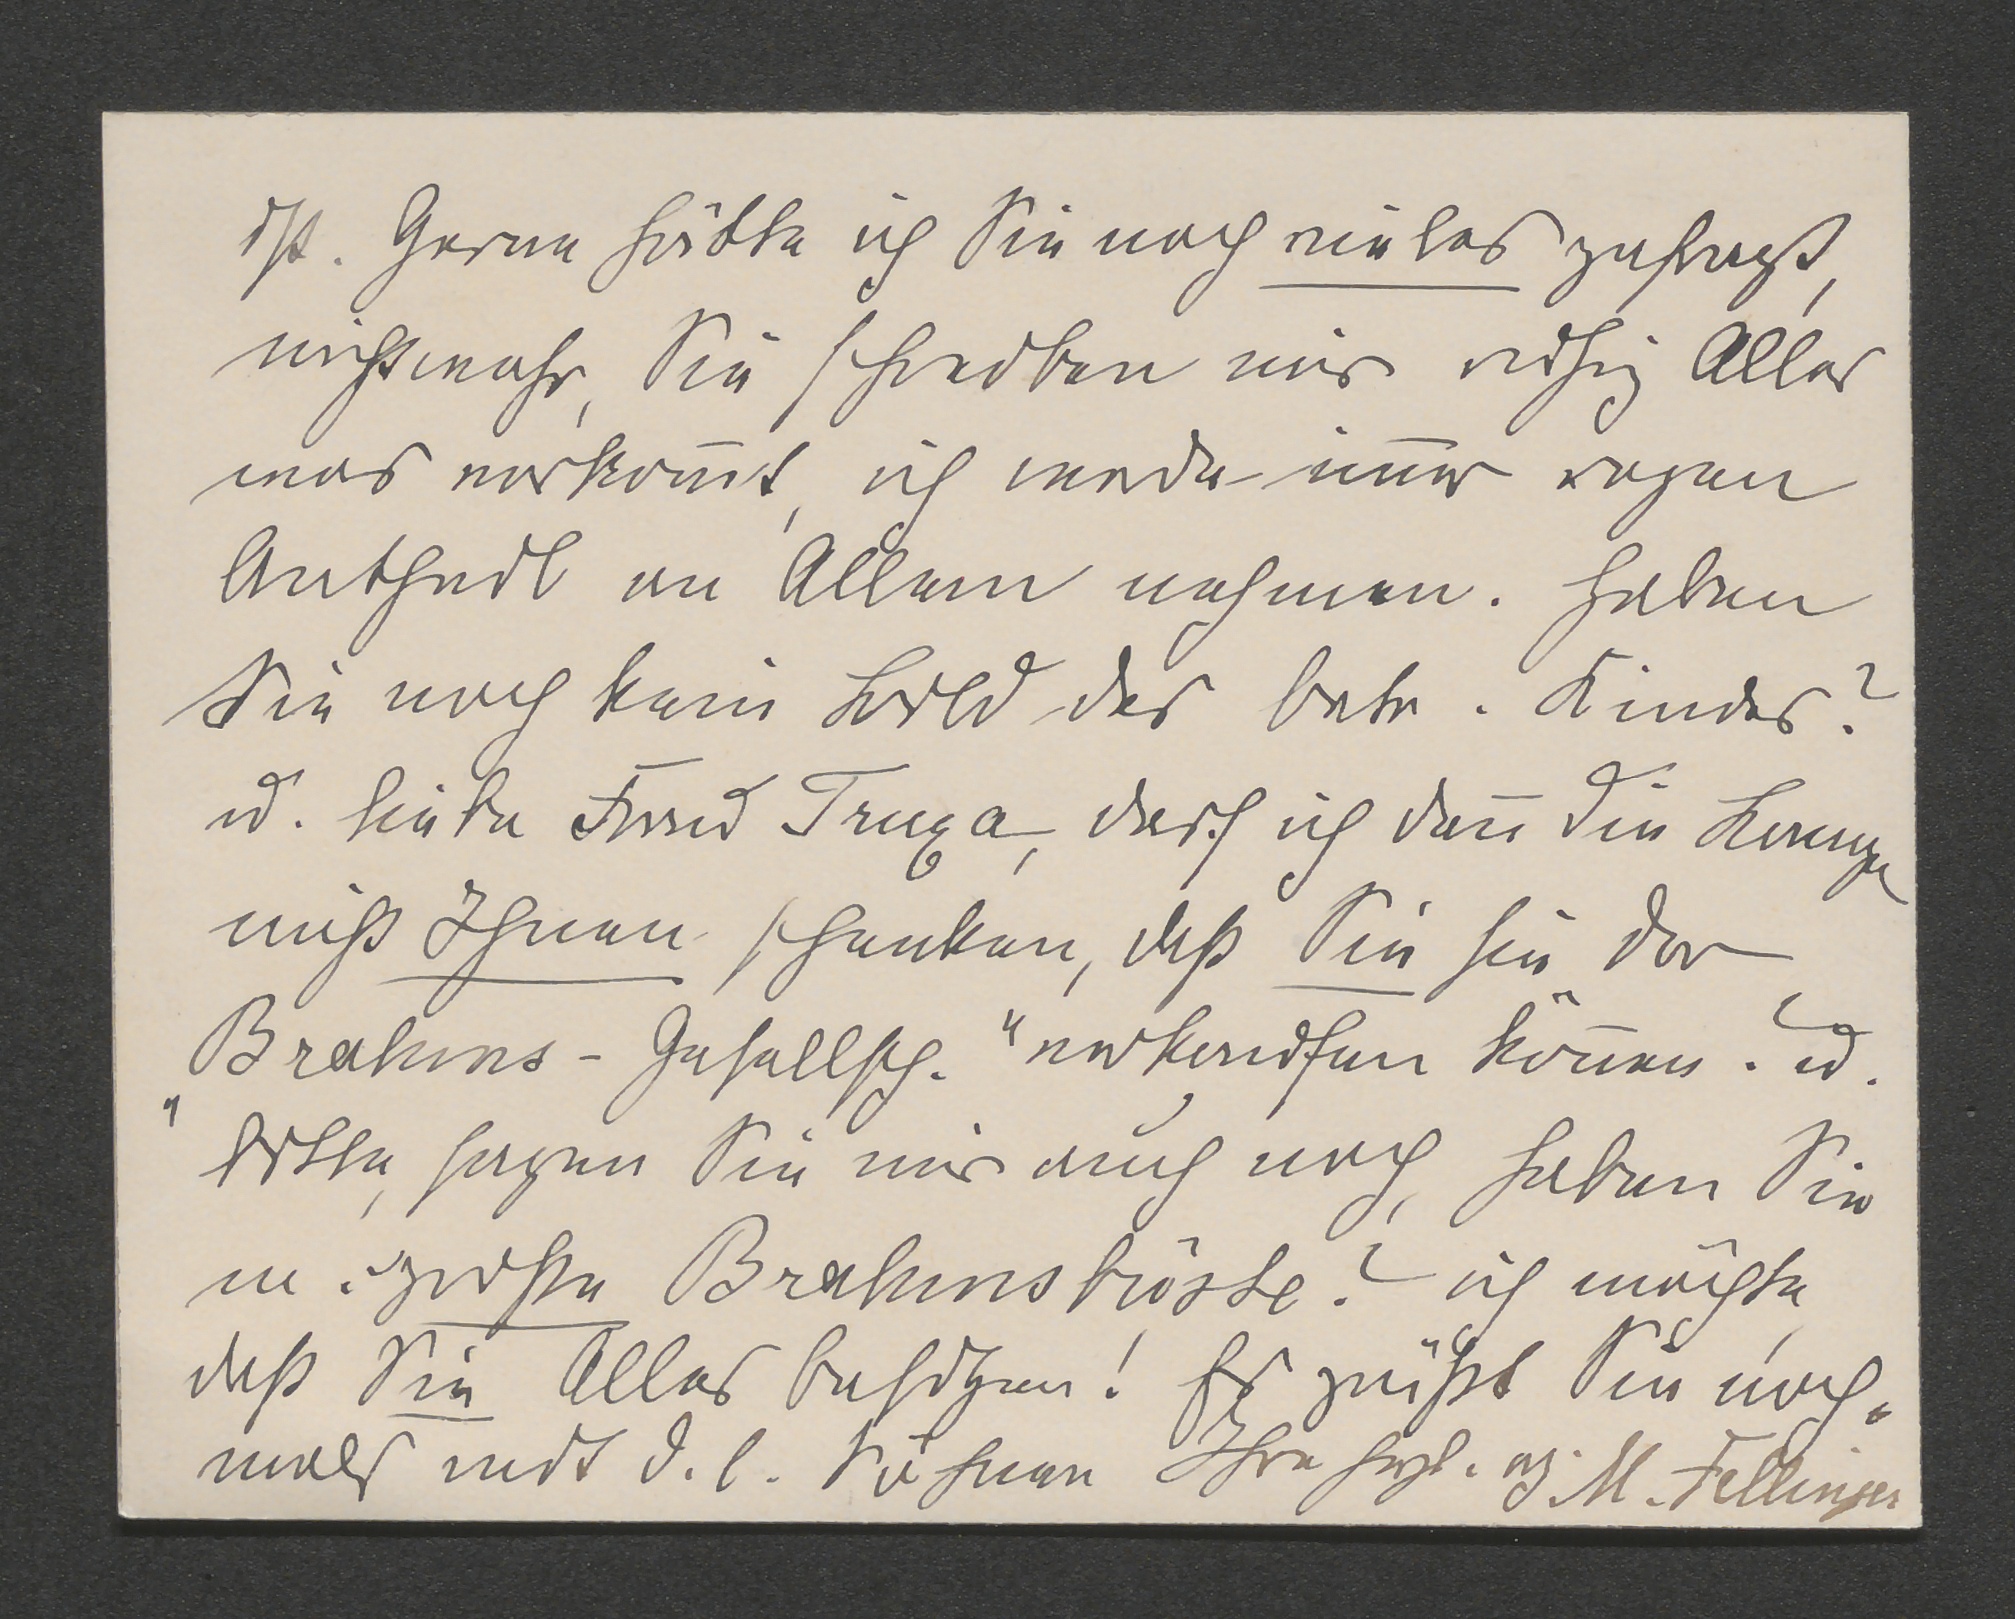 ist. Gerne hätte ich Sie noch vieles gefragt,
nichtwahr, Sie schreiben mir ruhig Alles
was vorkom̅t, ich werde im̅er regen
Antheil an Allem nehmen. Haben
Sie noch kein Bild des betr. Kindes?
u. liebe Frau Truxa, darf ich dan̅ die
Ihnen schenken, daß Sie sie der
Brahms-Gesellsch. "verkaufen kön̅en"? u.
bitte, sagen Sie mir auch noch, haben Sie
m. große Brahmsbüste? ich möchte,
daß Sie Alles besitzen! Es grüßt Sie noch-
mals mit d. l. Söhnen Ihre herzl. erg. M. Fellinger